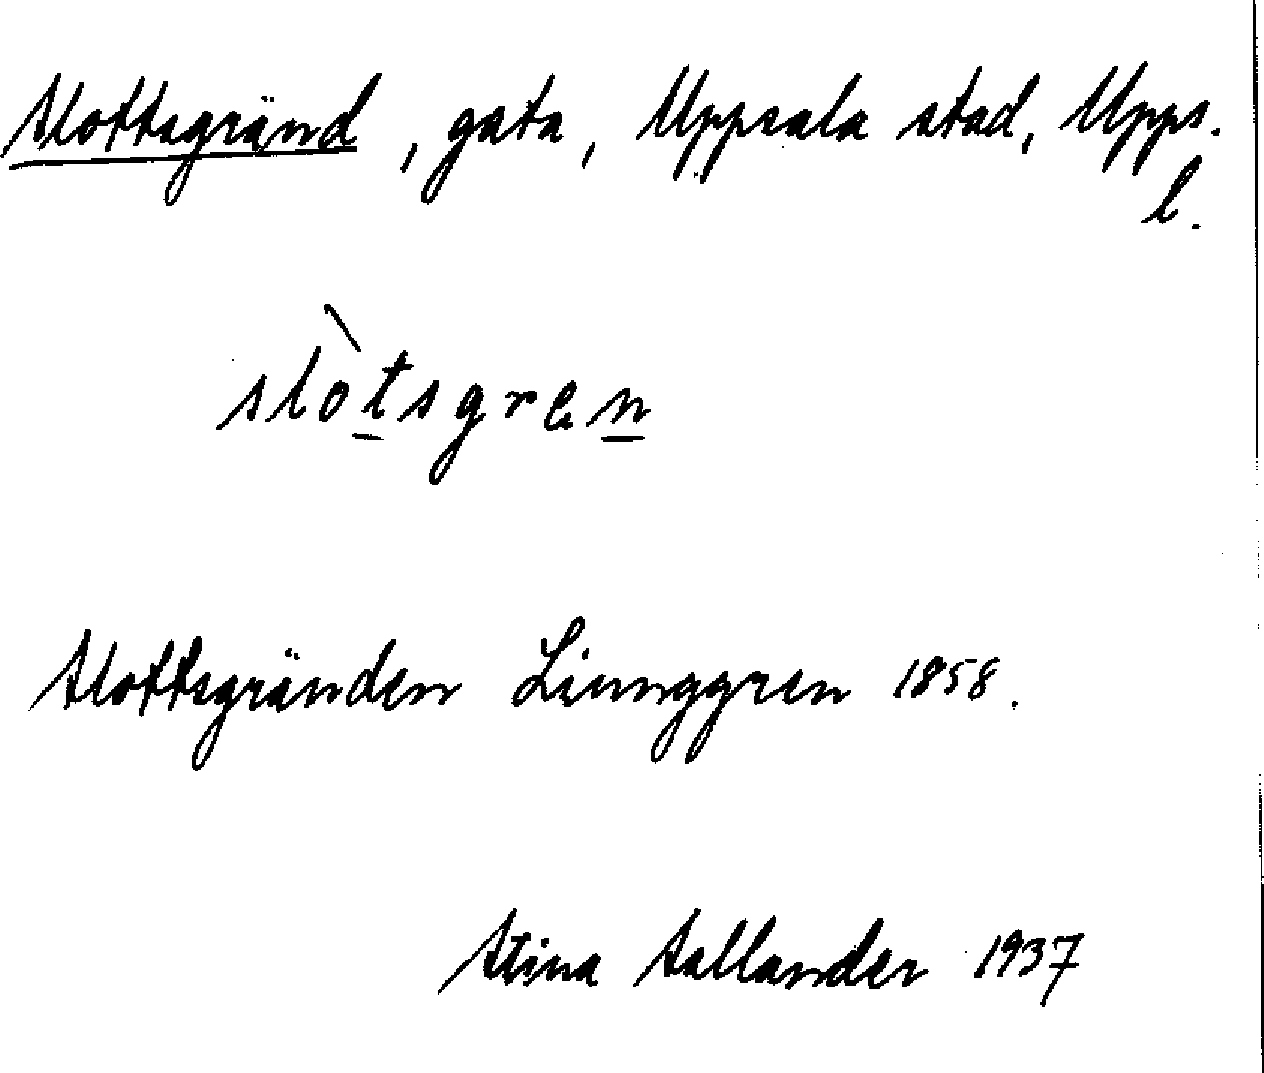 Slottsgränd, gata, Uppsala stad, Upps.
l.
slòt̲sgren̲
Slottsgränden Linnggren 1858.
Stina Sallander 1937